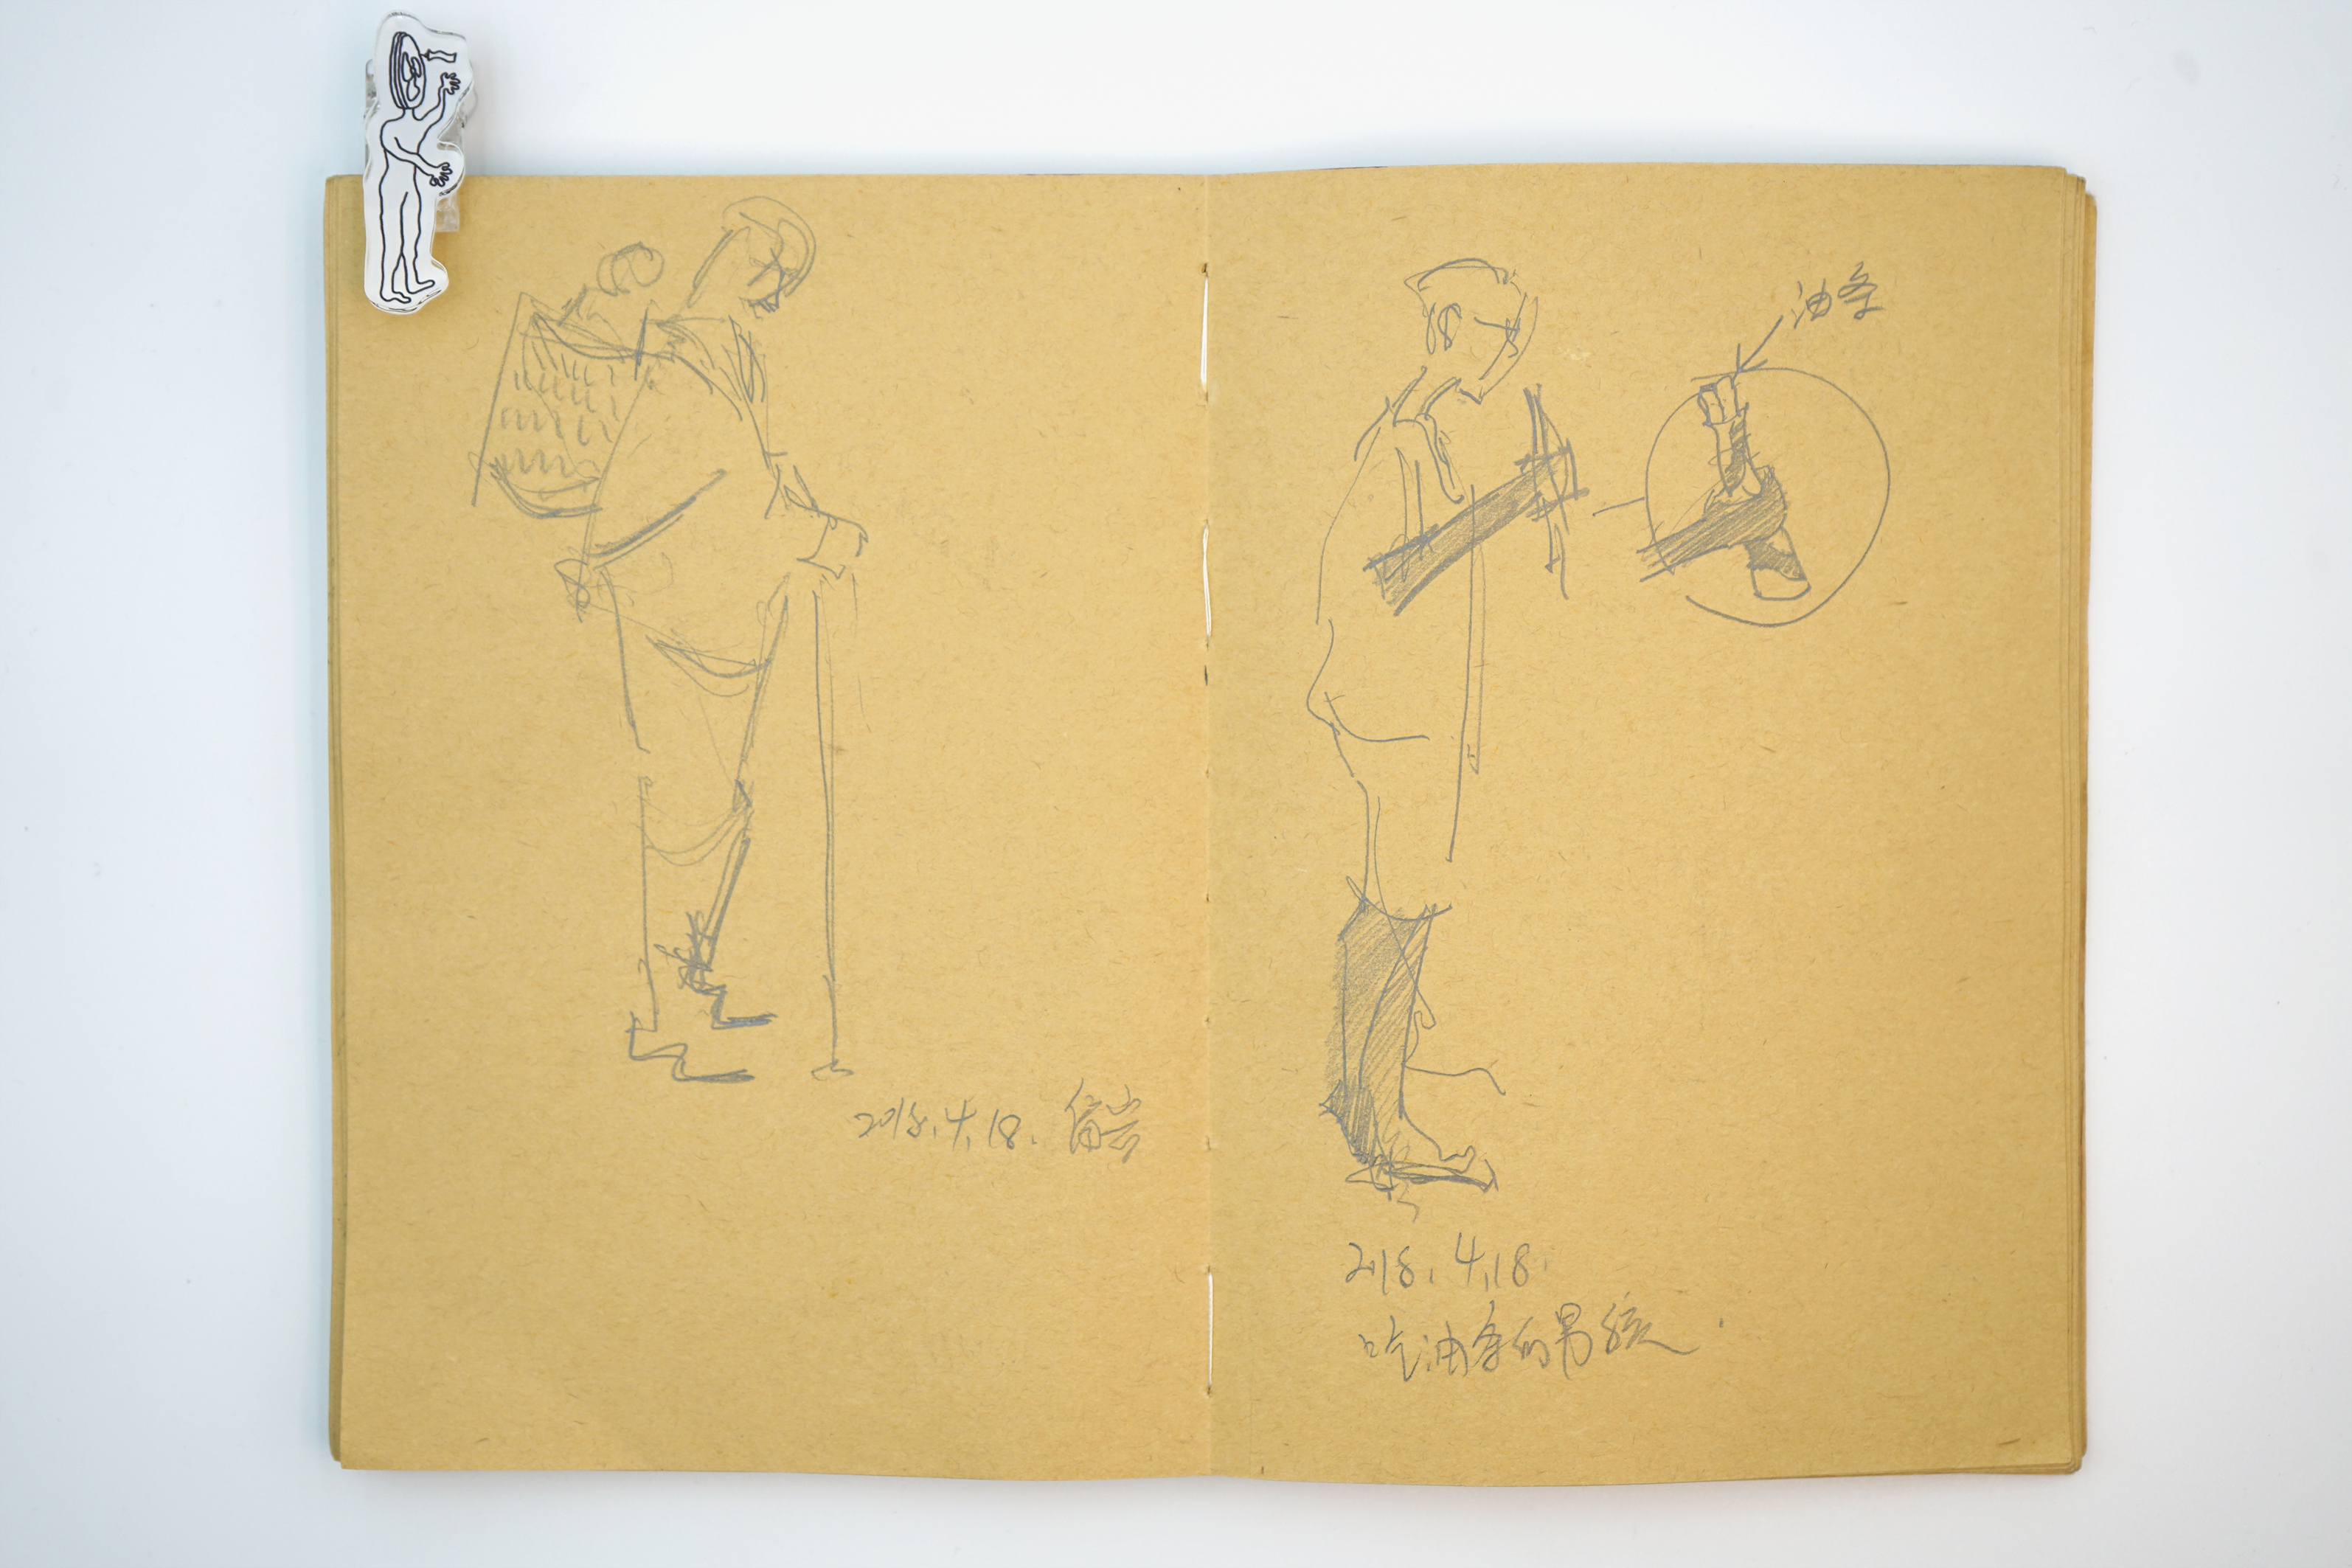 2018.4.18.
油条
2018.4.18.
吃油条的男孩.